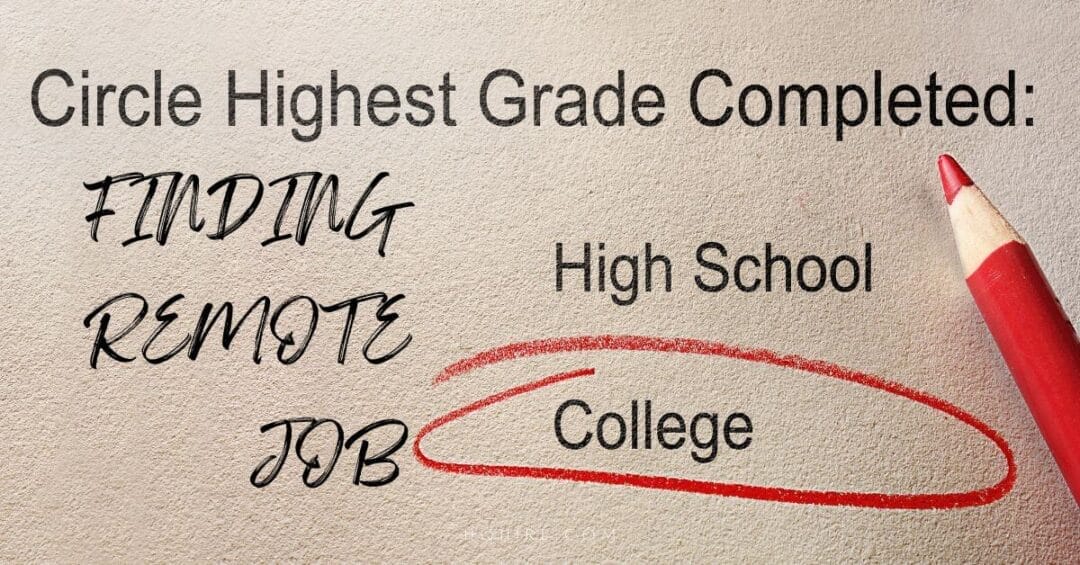 Circle Highest Grade Completed:
FINDING
REMOTE
JOB
High School
College